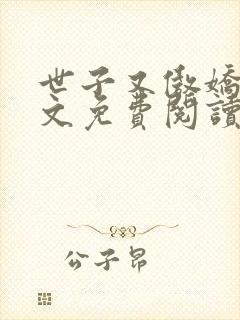 世子又傲嬌
文免費閱讀
公子昂